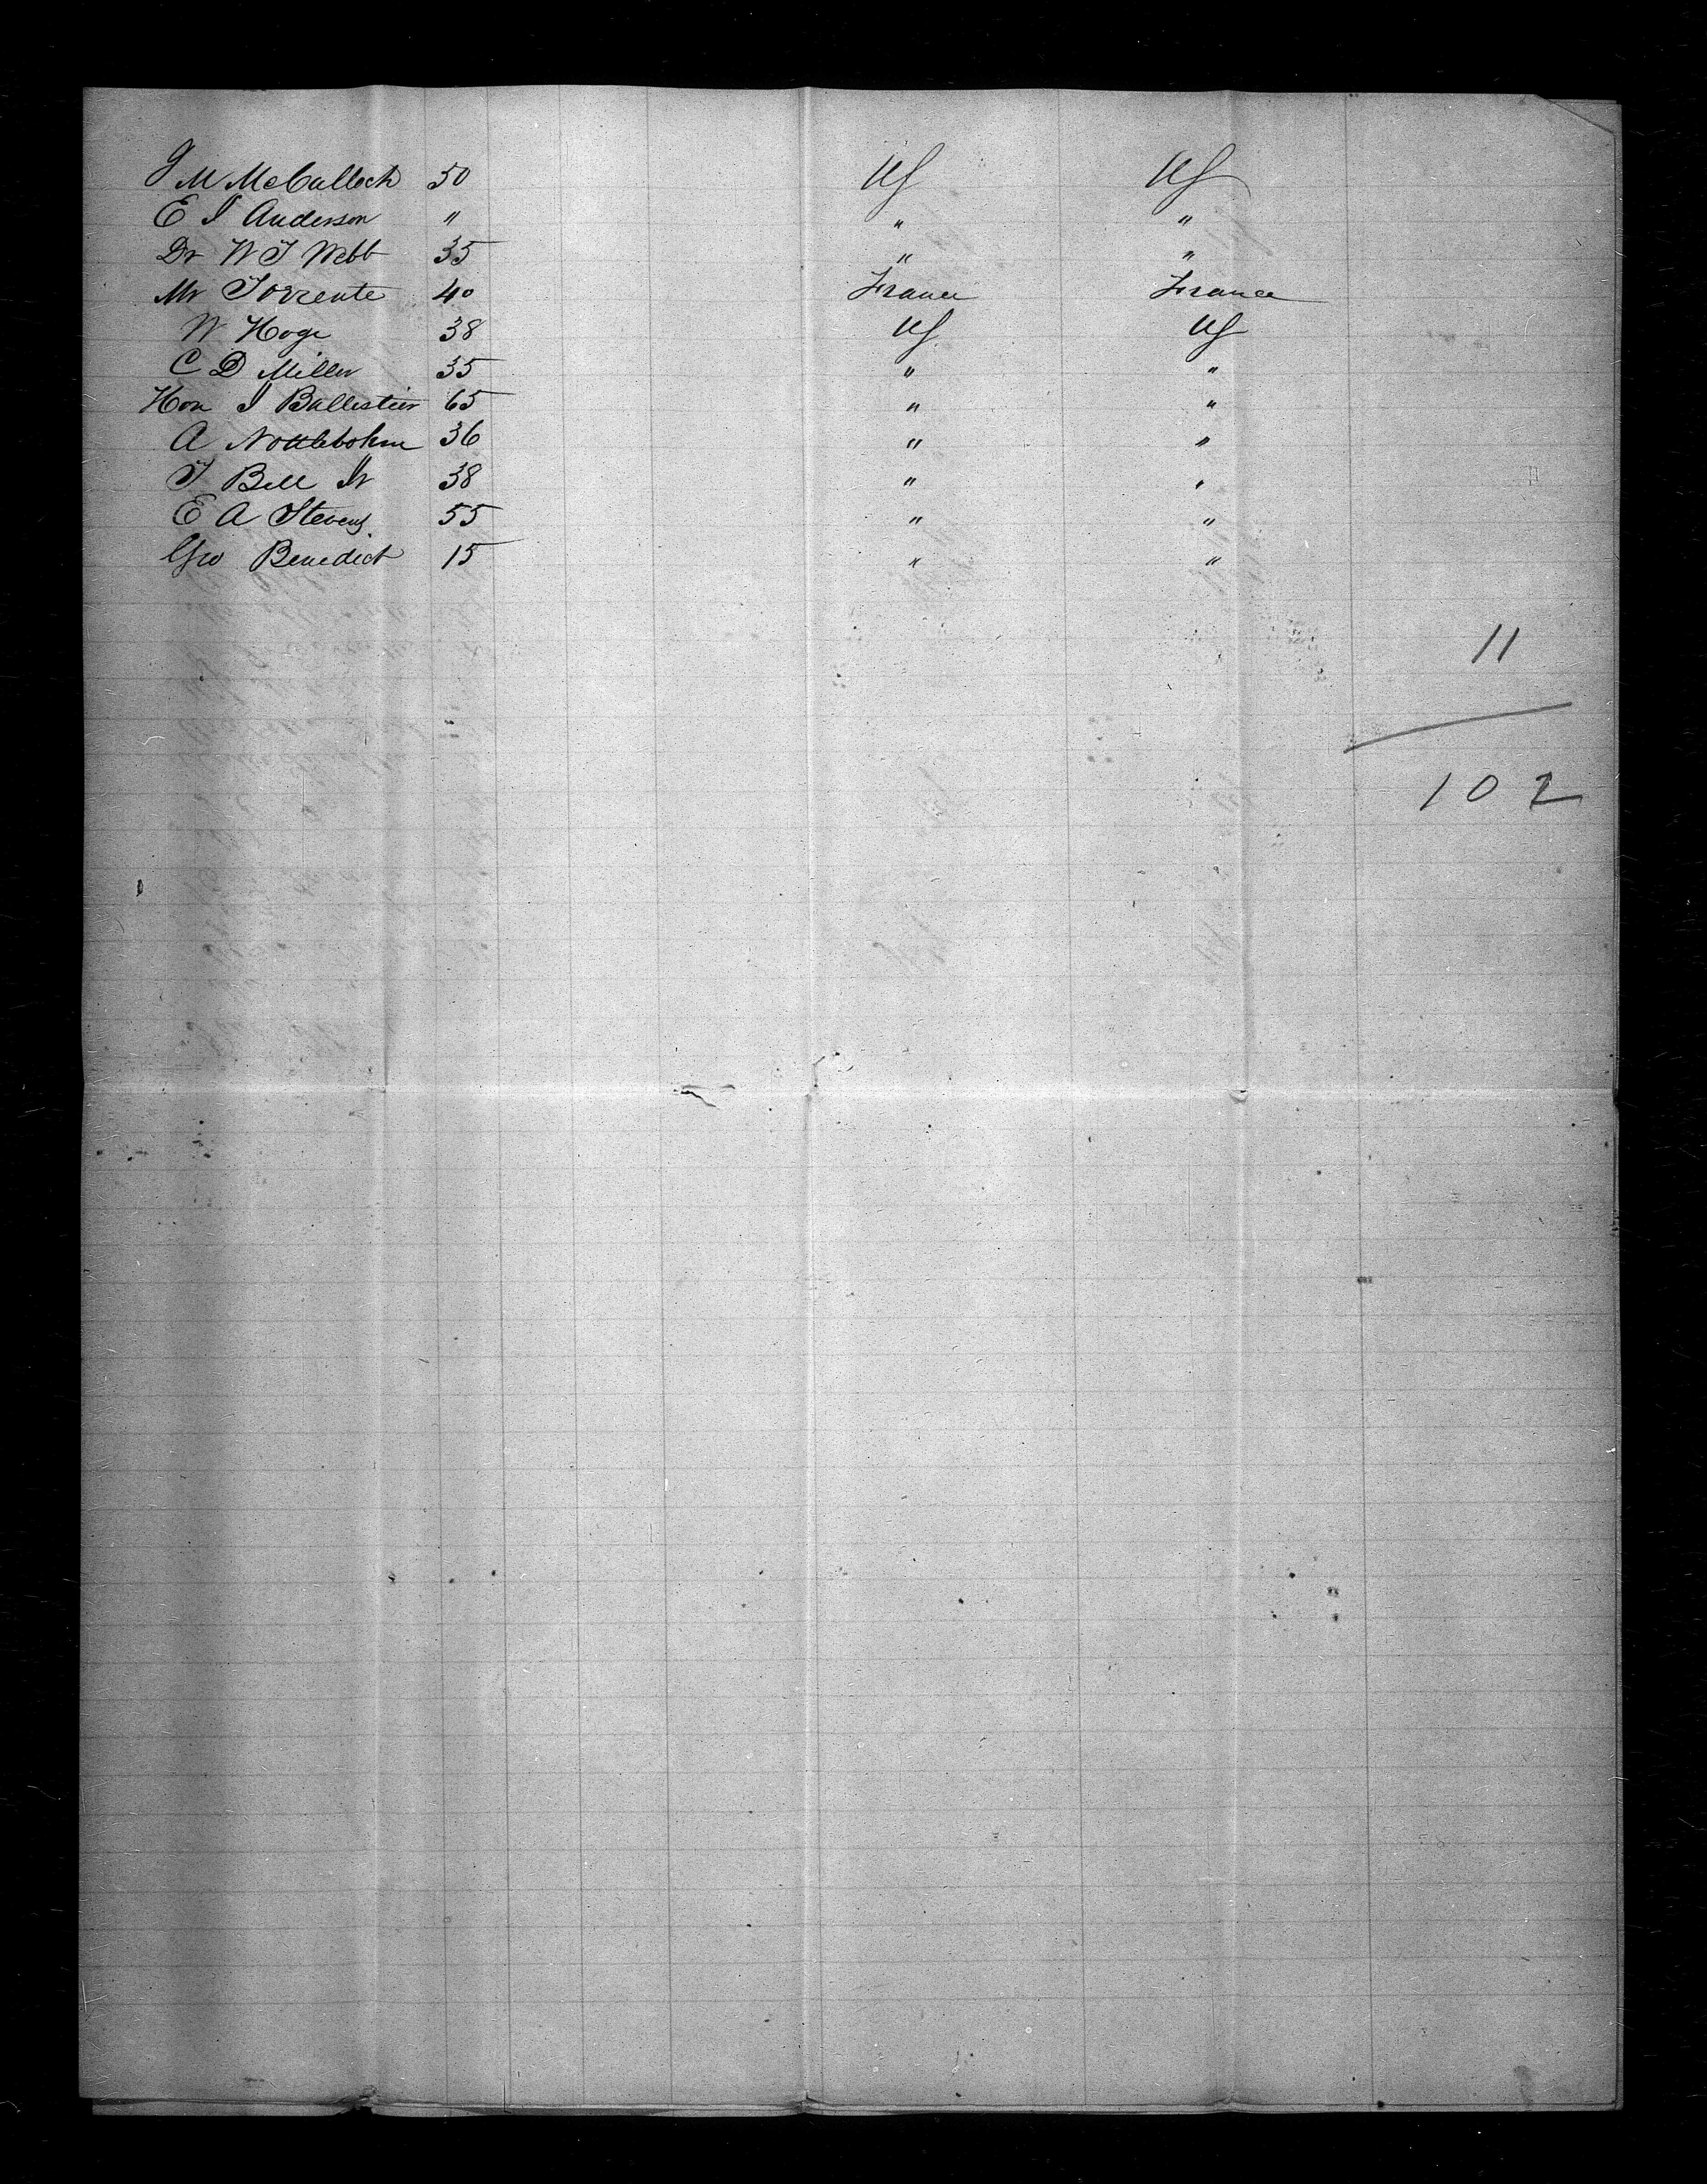 J M McCulloch 50 US US
E I Anderson " " "
Dr W T Webb 35 " "
Mr Torrente 40 France France
W Hoge 38 US US
C D Miller 35 " "
Hon J Ballestier 65 " "
A Nottlebohm 36 " "
T Bell Jr 38 " "
E A Stevens 55 " "
Geo Benedict 15 " "
11
102